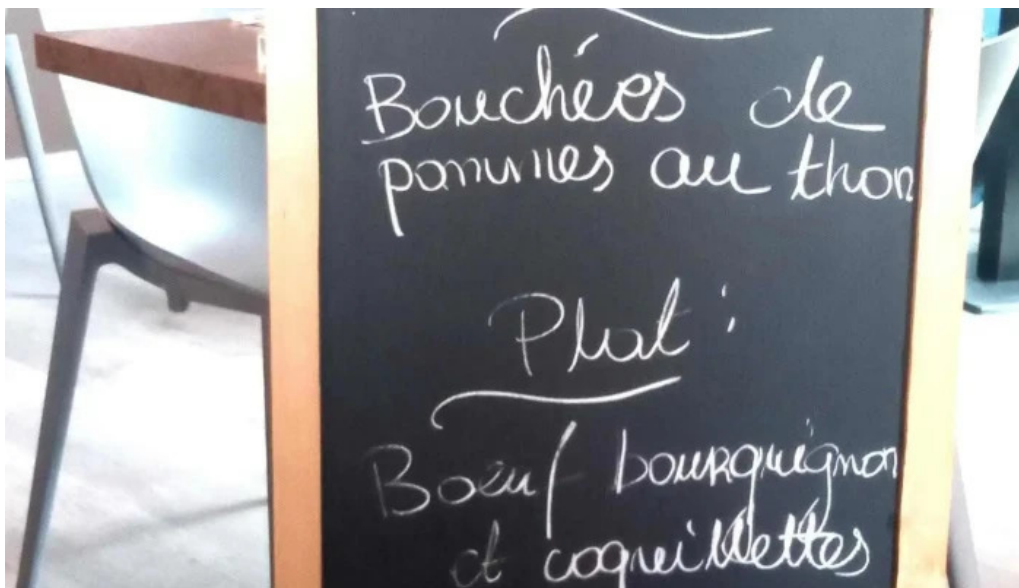 Bouchées de
pommes au thon
Plat :
Boeuf bourguignon
et coquillettes